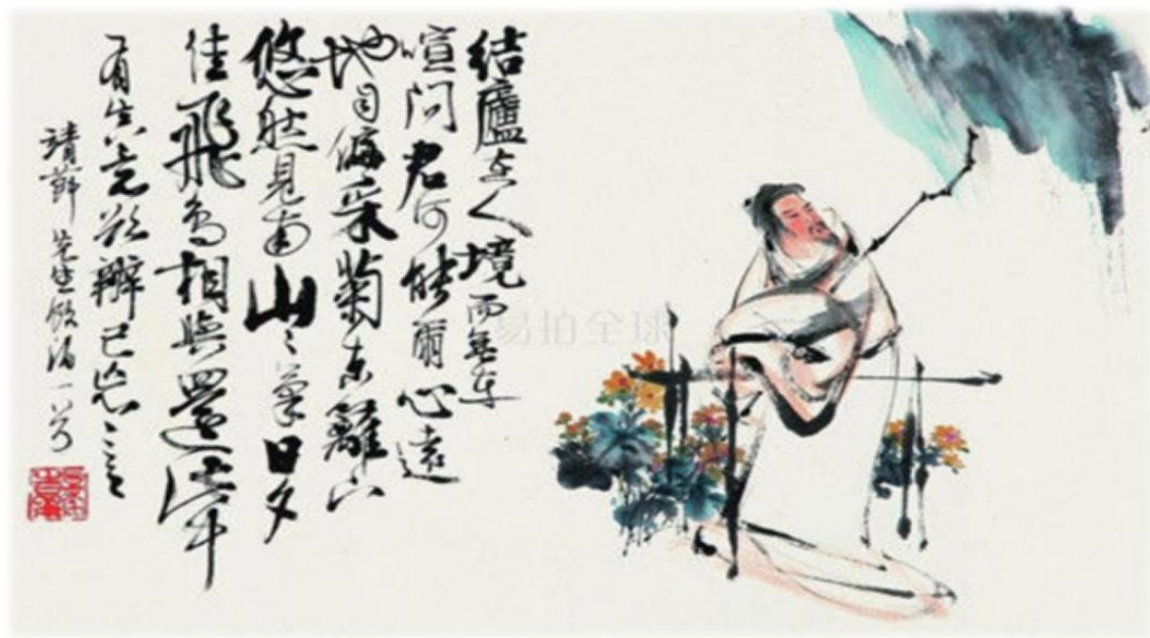 结廬在人境而無車
喧問君何能爾心遠
地自偏采菊东籬下
悠然見南山〻氣日夕
佳飛鳥相與還此中
有真意欲辨已忘言
靖節先生飲酒一首
易拍全球